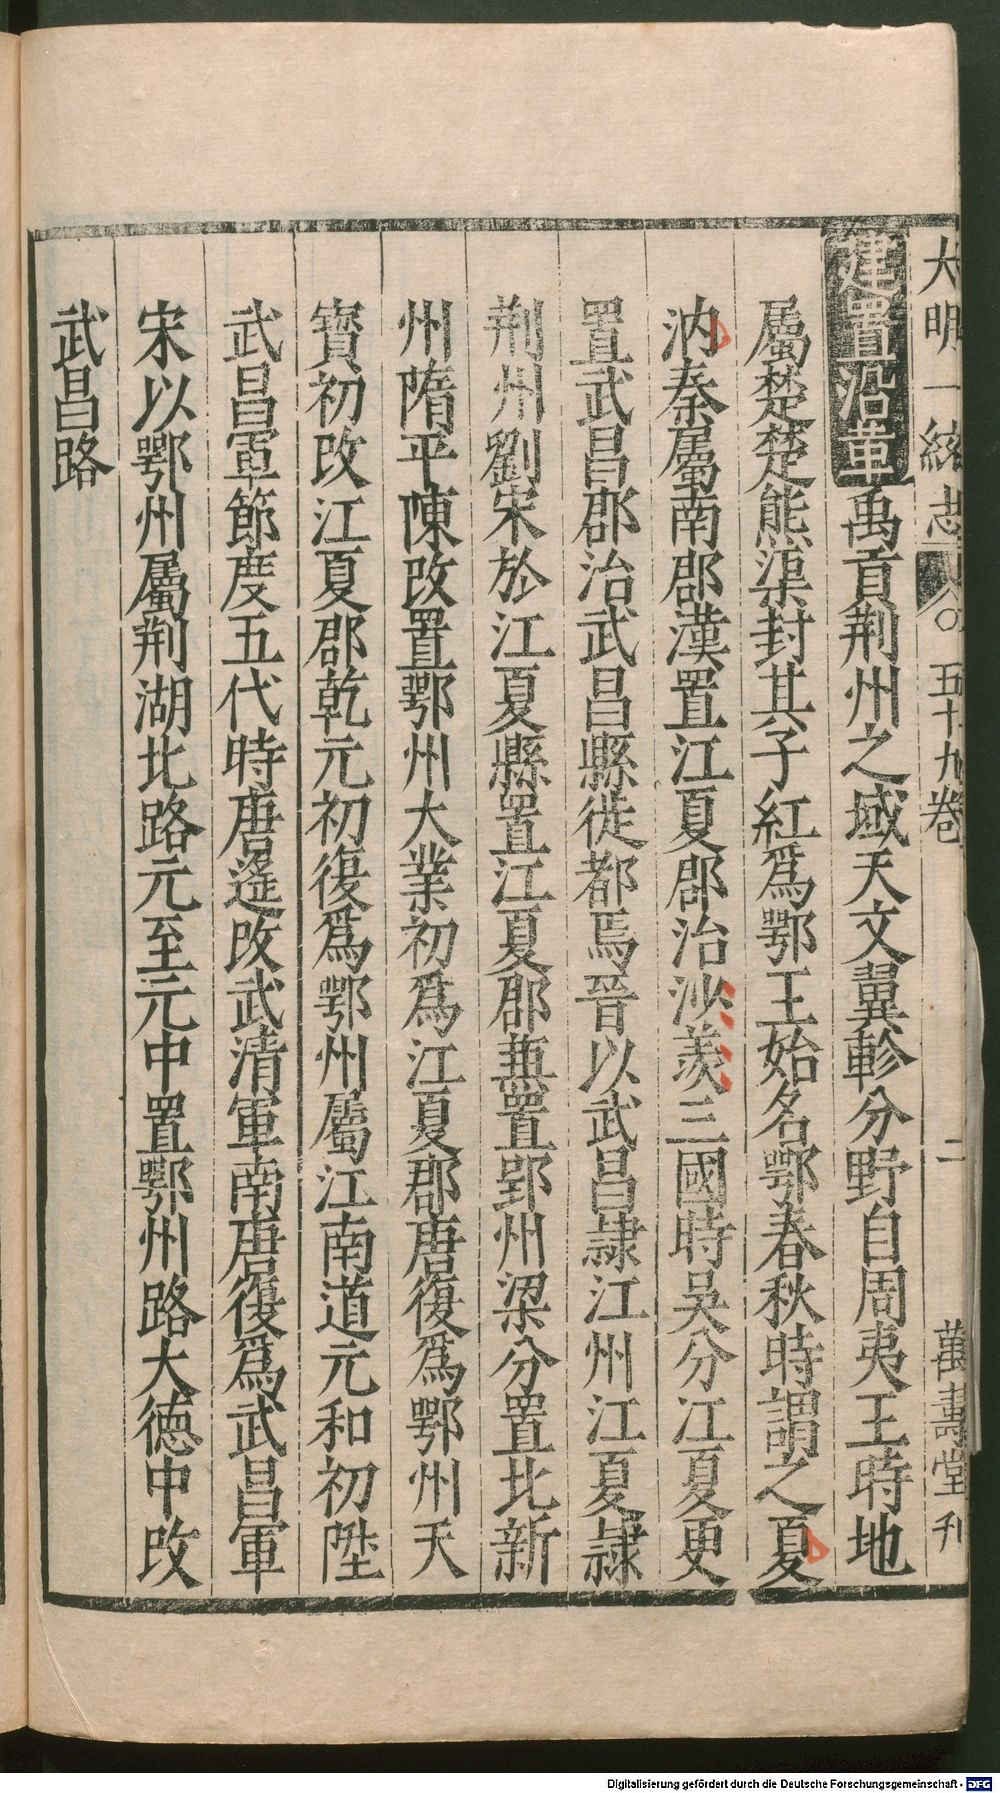 大明一統志 五十九卷 二 萬壽堂刊
建置沿革禹貢荆州之域天文翼軫分野自周夷王時地
屬楚楚熊渠封其子紅爲鄂王始名鄂春秋時謂之夏
汭秦屬南郡漢置江夏郡治沙羨三國時吳分江夏更
置武昌郡治武昌縣徙都焉晉以武昌隷江州江夏隷
荆州劉宋於江夏縣置江夏郡兼置郢州梁分置北新
州隋平陳改置鄂州大業初爲江夏郡唐復爲鄂州天
寳初改江夏郡乾元初復爲鄂州屬江南道元和初陞
武昌軍節度五代時唐遥改武清軍南唐復爲武昌軍
宋以鄂州屬荆湖北路元至元中置鄂州路大德中改
武昌路
Digitalisierung gefördert durch die Deutsche Forschungsgemeinschaft - DFG